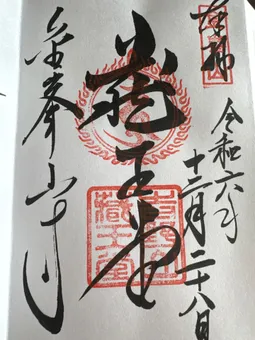 奉拝
令和六年
十二月二十八日
蔵王堂
金峯山寺